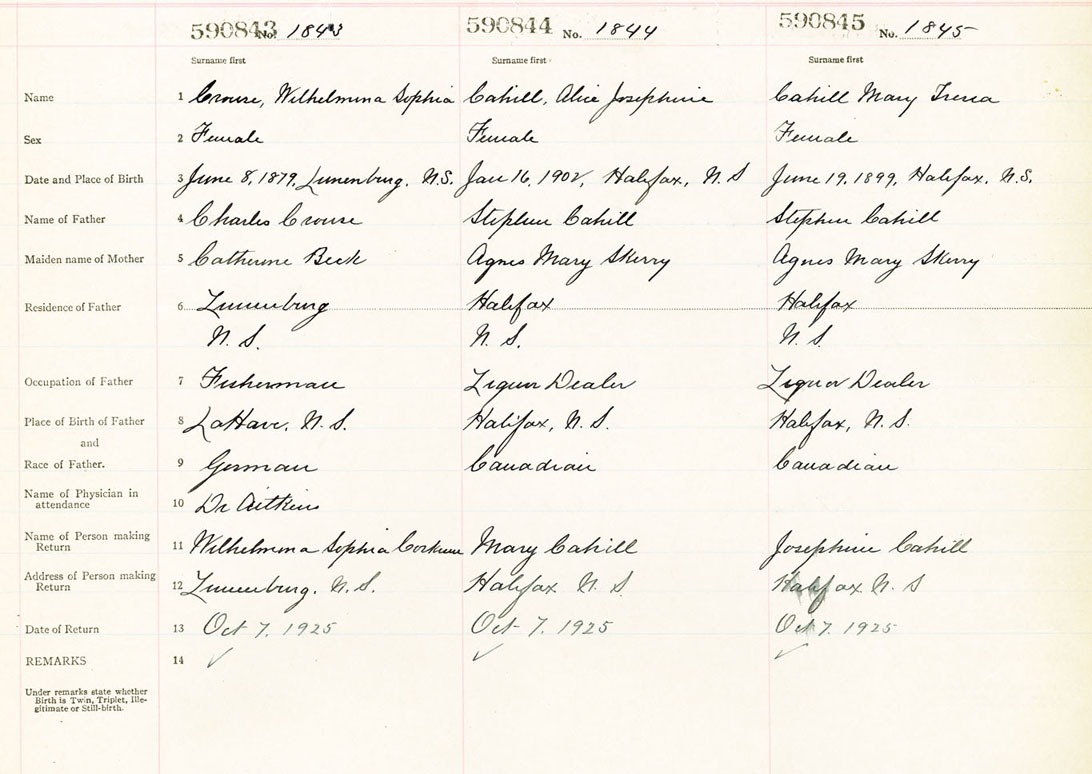 590843 No. 1843 590844 No. 1844 590845 No. 1845
Surname first Surname first Surname first
Name 1 Crouse, Wilhelmina Sophia Cahill, Alice Josephine Cahill Mary Irena
Sex 2 Female Female Female
Date and Place of Birth 3 June 8, 1879, Lunenburg, N.S. Jan 16, 1902, Halifax, N.S June 19, 1899, Halifax, N.S.
Name of Father 4 Charles Crouse Stephen Cahill Stephen Cahill
Maiden name of Mother 5 Catherine Beck Agnes Mary Skerry Agnes Mary Skerry
Residence of Father 6 Lunenburg Halifax Halifax
N.S. N.S. N.S
Occupation of Father 7 Fisherman Liquor Dealer Liquor Dealer
Place of Birth of Father 8 LaHave, N.S. Halifax, N.S. Halifax, N.S.
and
Race of Father. 9 German Canadian Canadian
Name of Physician in
attendance 10 Dr Aitkins
Name of Person making
Return 11 Wilhelmina Sophia Corkum Mary Cahill Josephine Cahill
Address of Person making
Return 12 Lunenburg, N.S. Halifax N.S Halifax N.S
Date of Return 13 Oct 7, 1925 Oct 7, 1925 Oct 7, 1925
REMARKS 14
Under remarks state whether
Birth is Twin, Triplet, Ille-
gitimate or Still-birth.